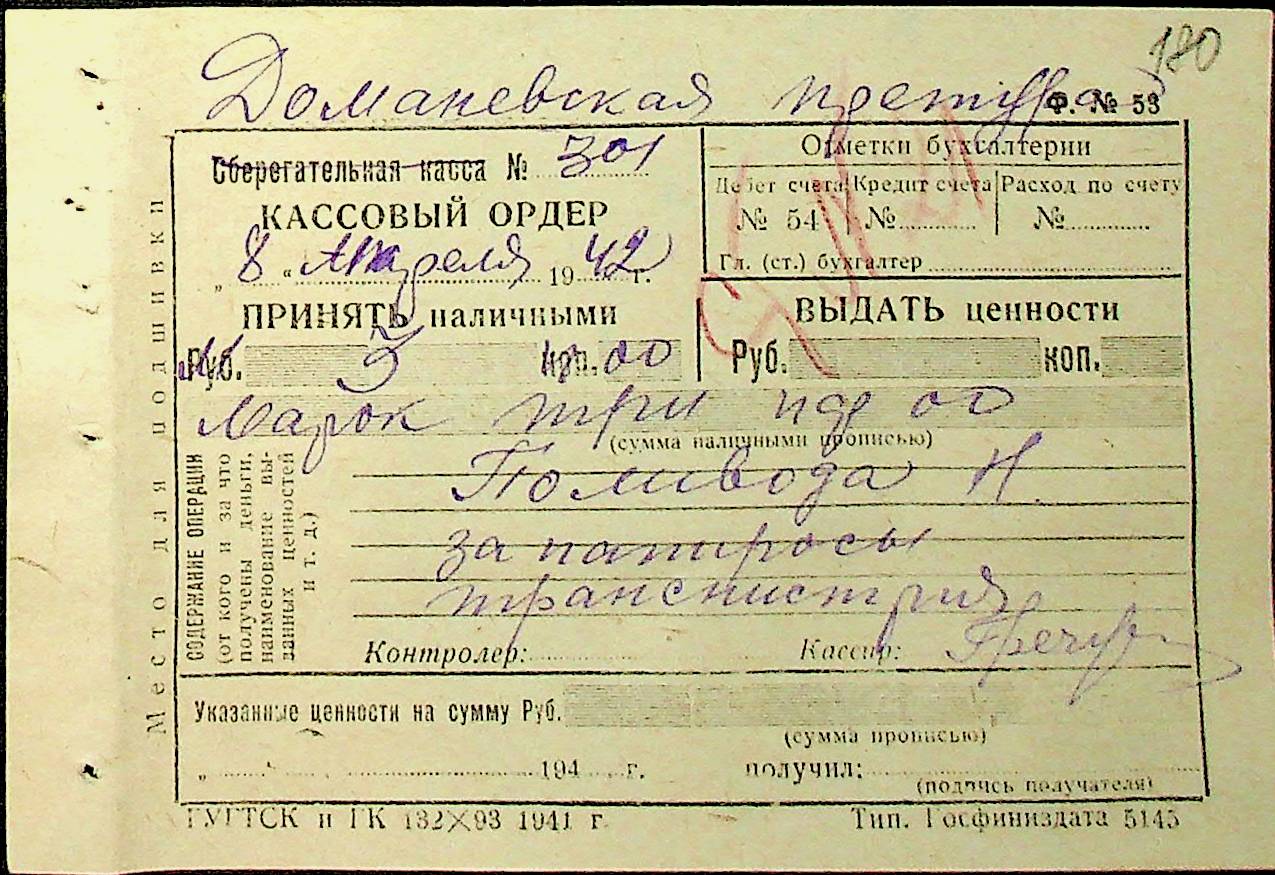 180
Доманевская претура
Ф. № 53
Сберегательная касса № 301
КАССОВЫЙ ОРДЕР
„ 8 “ Апреля 1942 г.
Отметки бухгалтерии
Дебет счета Кредит счета Расход по счету
№ 54 № №
Гл. (ст.) бухгалтер
ПРИНЯТЬ наличными
ВЫДАТЬ ценности
Руб. 3 коп. 00
Руб. коп.
Марок три пф 00
(сумма наличными прописью)
СОДЕРЖАНИЕ ОПЕРАЦИИ
(от кого и за что
получены деньги,
наименование вы-
данных ценностей
и т. д.)
Поливода Н.
за папиросы
транснистрия
Контролер: Кассир:
Указанные ценности на сумму Руб.
(сумма прописью)
„ “ 194 г. получил:
(подпись получателя)
Место для подшивки
ГУГТСК и ГК 132X93 1941 г.
Тип. Госфиниздата 5145